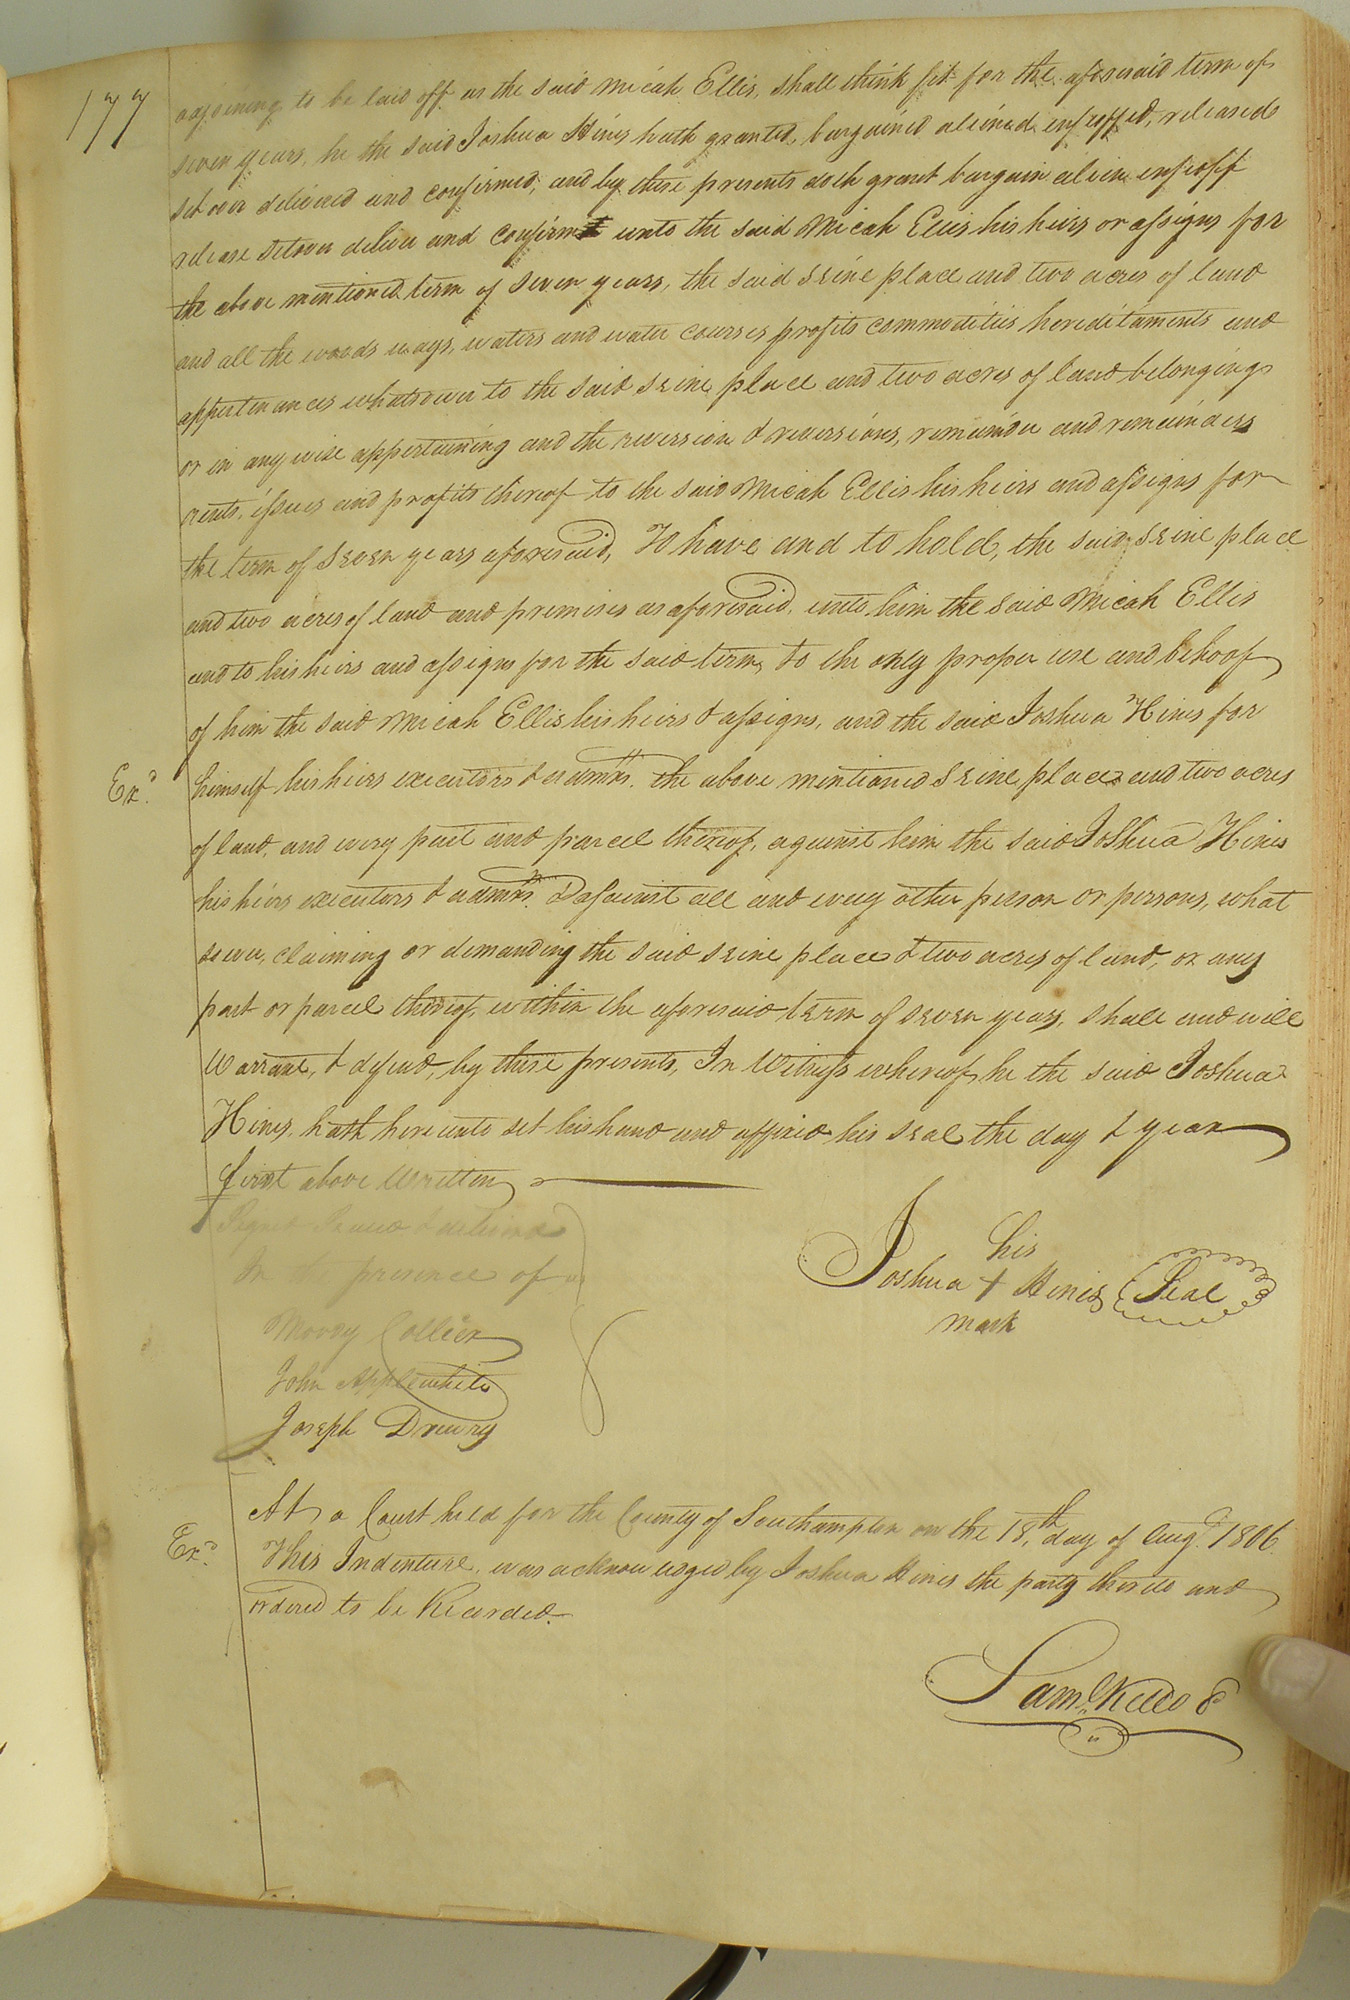 177
adjoining to be laid off as the said Micah Ellis, shall think fit for the aforesaid term of
seven years, he the said Joshua Hines hath granted, bargained aliened enfeoffed, released
set over delivered and confirmed, and by these presents doth grant bargain alien enfeoff
release set over deliver and confirm unto the said Micah Ellis his heirs or assigns for
the above mentioned term of seven years, the said seine place and two acres of land
and all the woods ways, waters and water courses profits commodities hereditaments and
appurtenances whatsoever to the said seine place and two acres of land belonging
or in any wise appertaining and the reversion & reversions, remainder and remainders
rents, issues and profits thereof to the said Micah Ellis his heirs and assigns for
the term of seven years aforesaid, To have and to hold, the said seine place
and two acres of land and premises as aforesaid, unto him the said Micah Ellis
and to his heirs and assigns for the said term, to the only proper use and behoof
of him the said Micah Ellis his heirs & assigns, and the said Joshua Hines for
Ex.d himself his heirs executors & admrs. the above mentioned seine place and two acres
of land, and every part and parcel thereof, against him the said Joshua Hines
his heirs executors & admrs. & against all and every other person or persons, what
soever, claiming or demanding the said seine place & two acres of land, or any
part or parcel thereof, within the aforesaid term of seven years, shall and will
Warrant, & defend, by these presents, In Witness whereof, he the said Joshua
Hines, hath hereunto set his hand and affixed his seal the day & year
first above Written
Signed Sealed & delivered
In presence of us
his
Joshua + Hines Seal
mark
Moody Collier
John Applewhite
Joseph Drewry
At a Court held for the County of Southampton on the 18th day of Augt. 1806
Ex.d This Indenture, was acknowledged by Joshua Hines the party thereto and
ordered to be Recorded.
Saml. Kello C